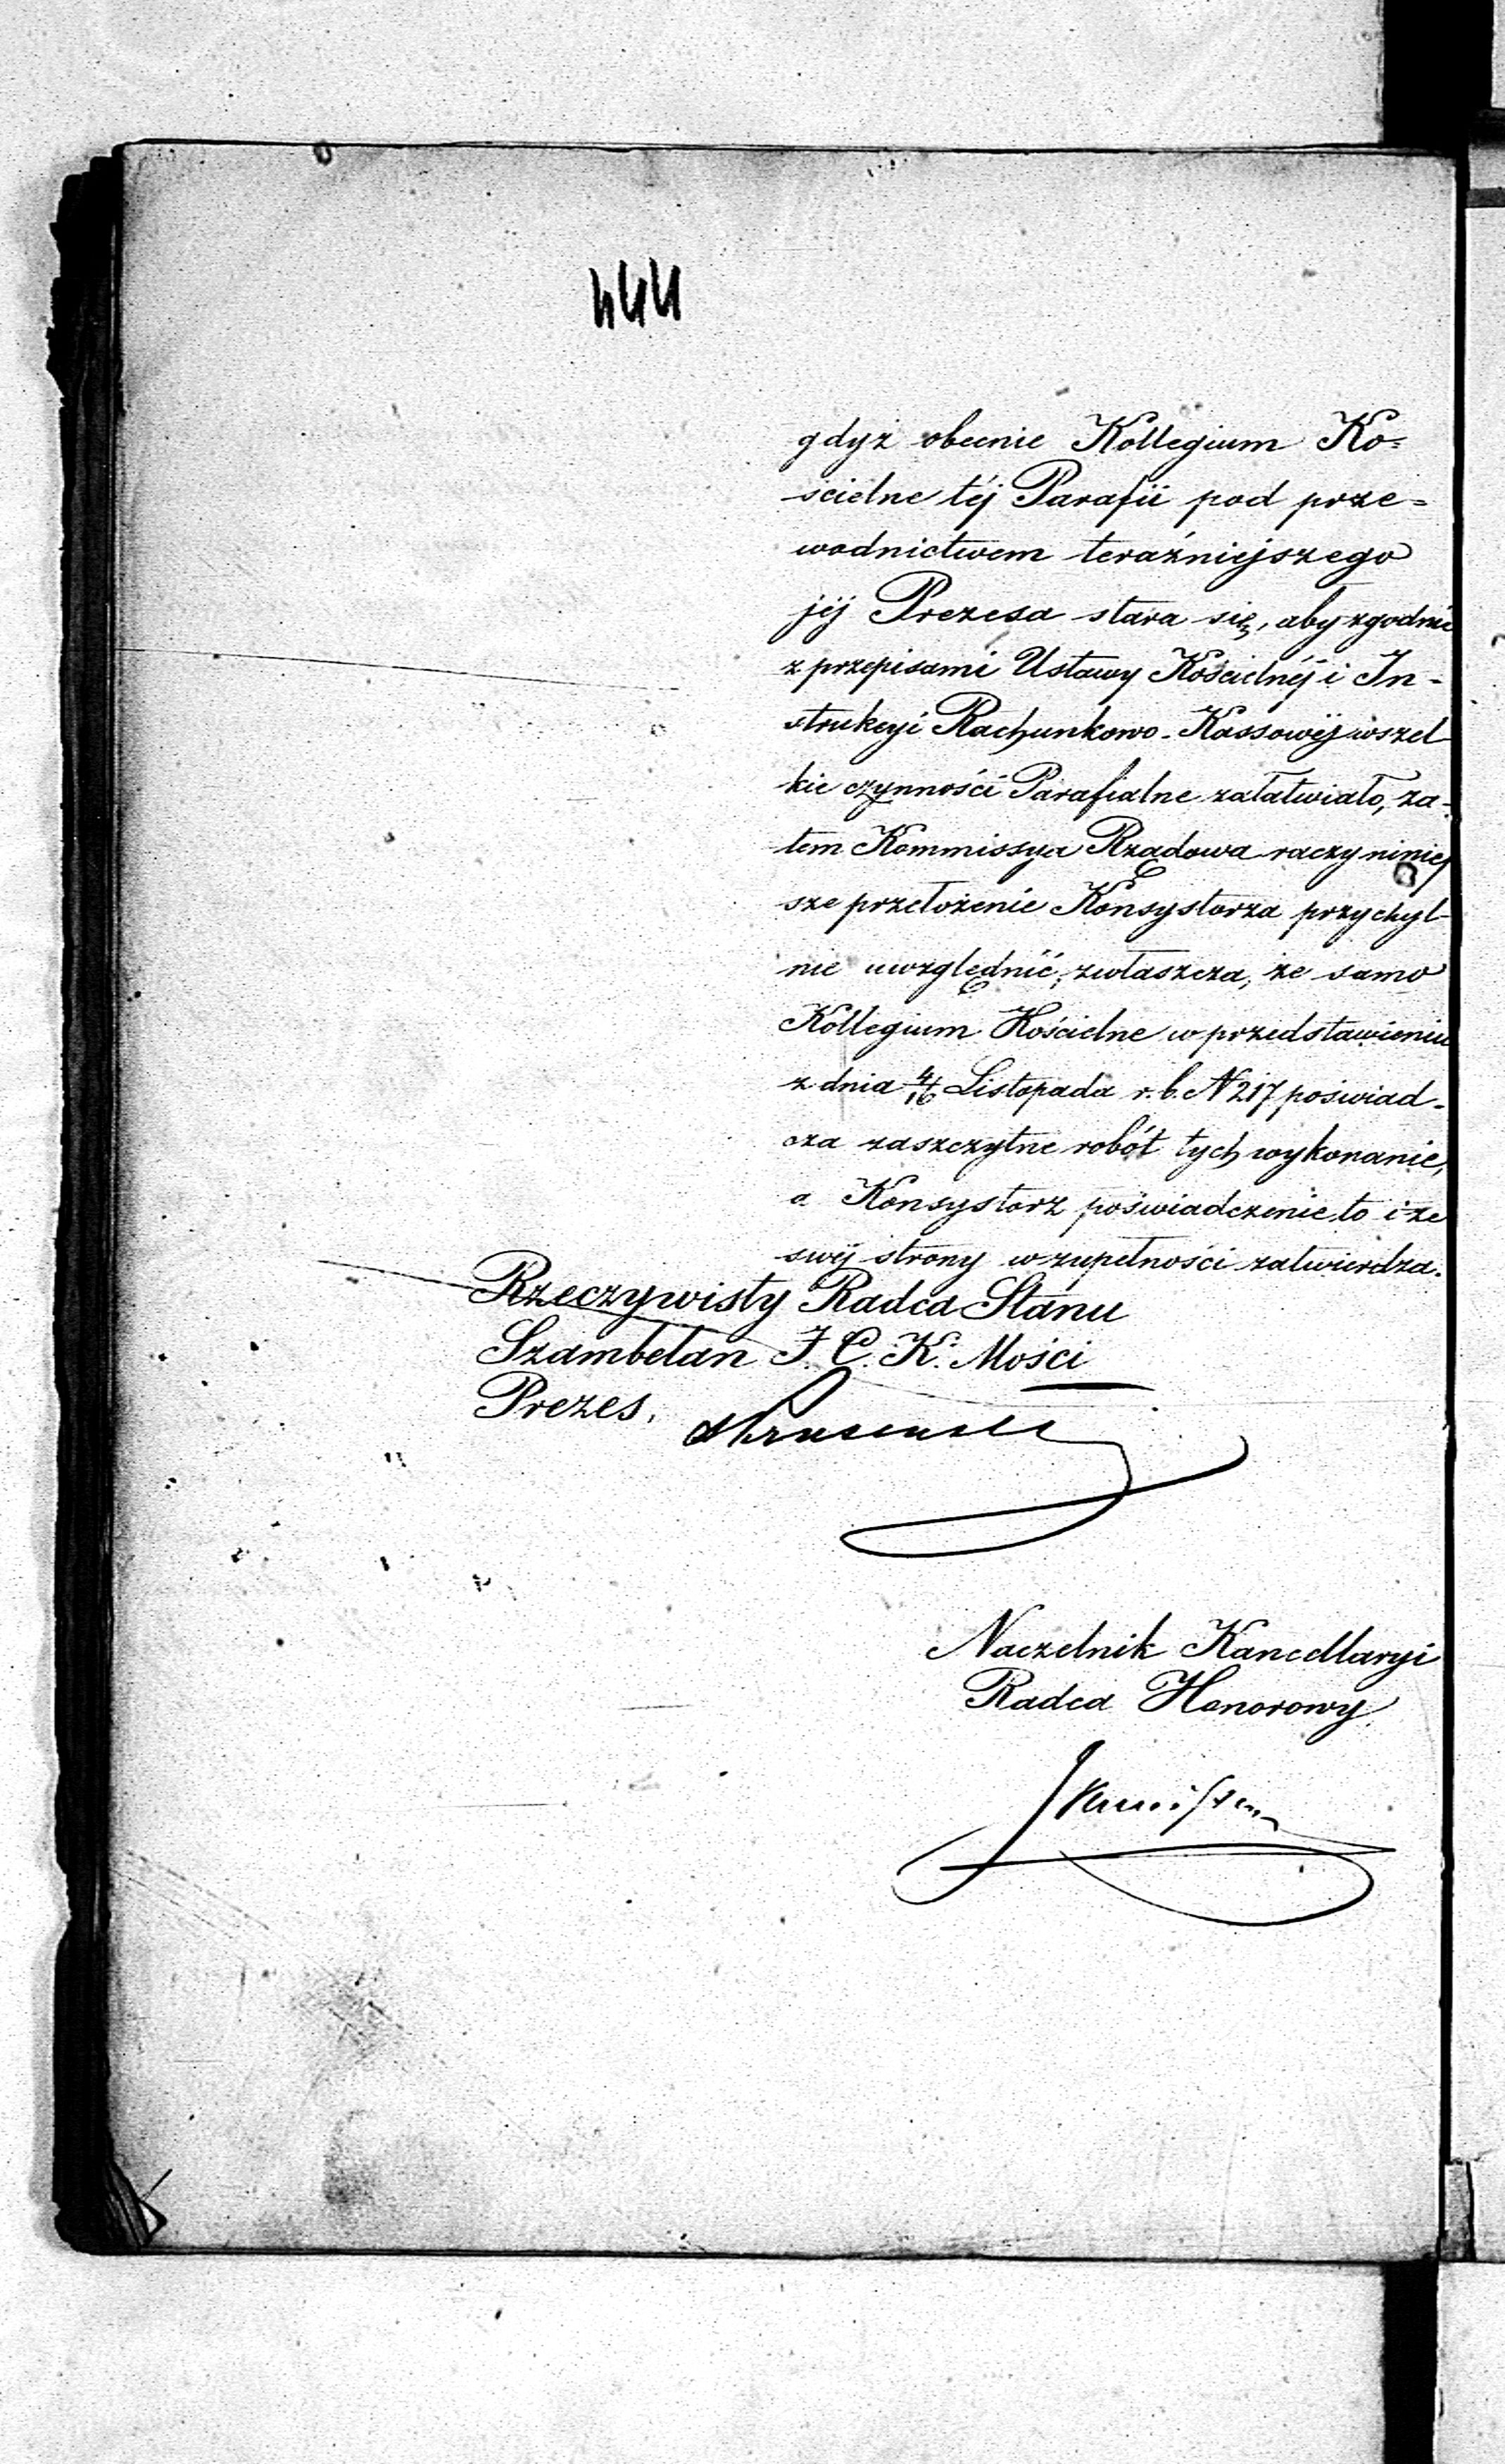 444
gdyż obecnie Kollegium Ko=
ścielne téj Parafii pod prze=
wodnictwem teraźniejszego
jéj Prezesa stara się, aby zgodnie
z przepisami Ustawy Kościelnéj i In-
strukcyi Rachunkowo-Kassowéj wszel
kie czynności Parafialne załatwiało, za-
tem Kommissya Rządowa raczy niniej
sze przełożenie Konsystorza przychyl-
nie uwzględnić, zwłaszcza, że samo
Kollegium Kościelne w przedstawieniu
z dnia 4/16 Listopada r. b. N 217 poświad-
cza zaszczytne robót tych wykonanie,
a Konsystorz poświadczenie to i ze
swéj strony w zupełności zatwierdza.
Rzeczywisty Radca Stanu
Szambelan J. C. K. Mości
Prezes.
Naczelnik Kancellaryi
Radca Honorowy